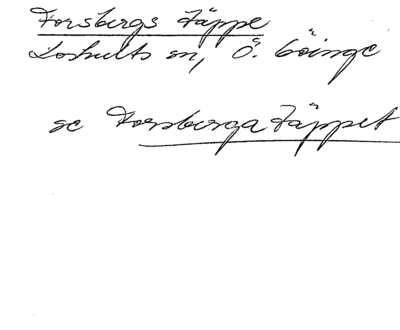 Forsbergs täppe
Loshults sn, Ö. Göinge
se Forsberga täppet